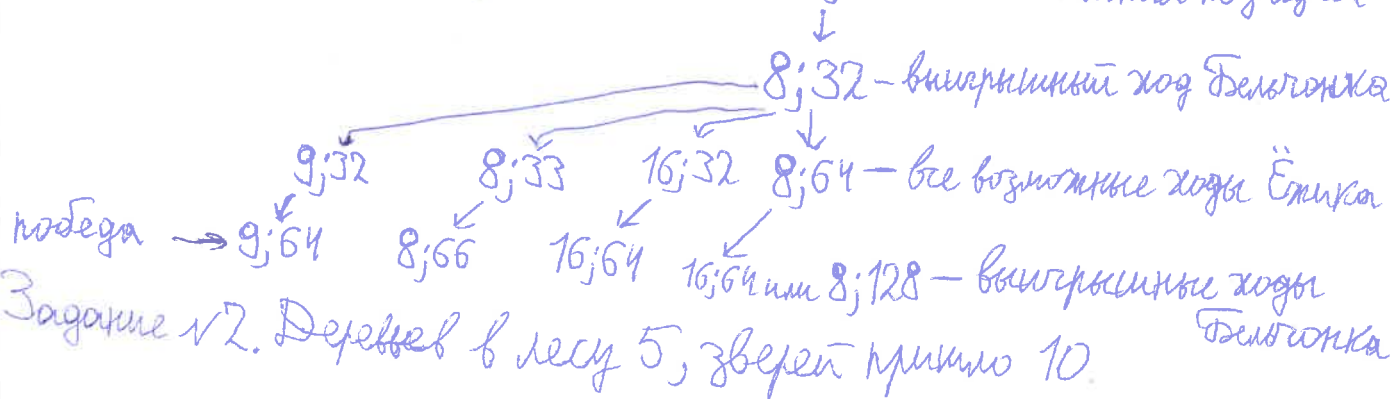 8;32 – выигрышный ход Бельчонка
9;32 8;33 16;32 8;64 – все возможные ходы Ёжика
победа → 9;64 8;66 16;64 16;64 или 8;128 – выигрышные ходы Бельчонка
Задание №2. Деревьев в лесу 5, зверей пришло 10